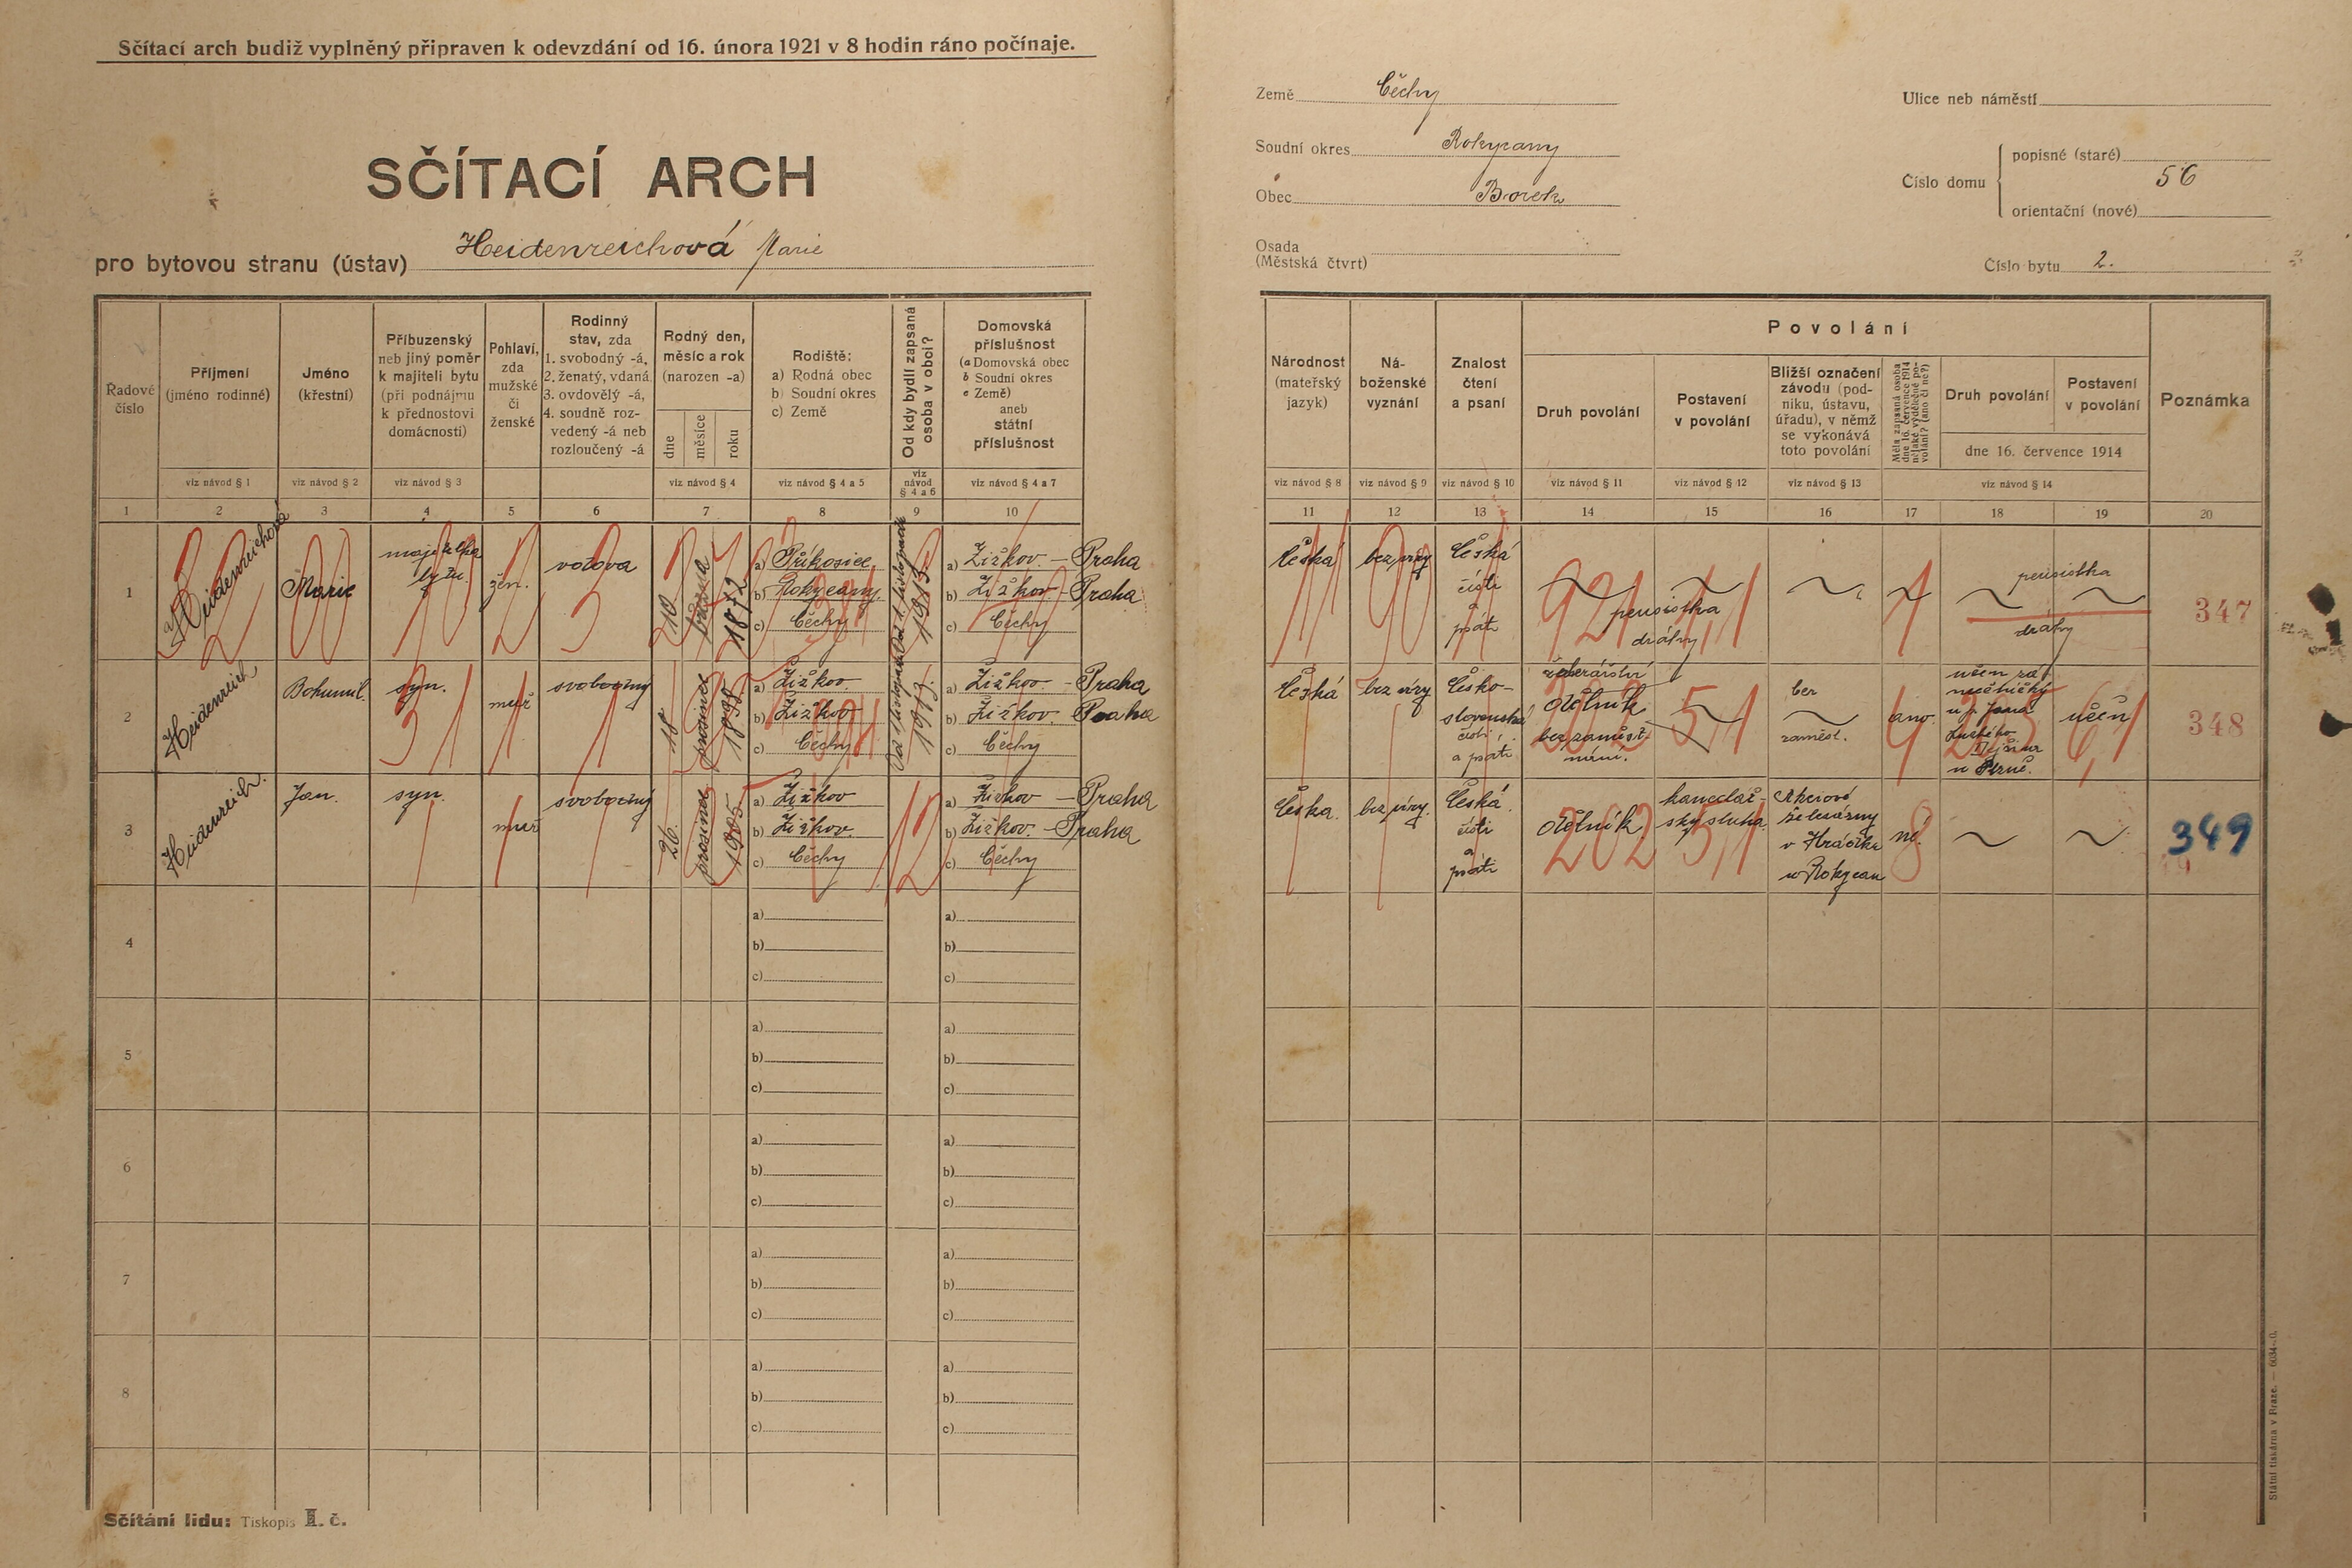 Sčítací arch budiž vyplněný připraven k odevzdání od 16. února 1921 v 8 hodin ráno počínaje.
SČÍTACÍ ARCH
pro bytovou stranu (ústav) Heidenreichová Marie
Země Čechy
Soudní okres Rokycany
Obec Borek
Osada
(Městská čtvrt)
Ulice neb náměstí
Číslo domu
popisné (staré)
56
orientační (nové)
Číslo bytu 2.
Řadové číslo
Příjmení
(jméno rodinné)
viz návod § 1
Jméno
(křestní)
viz návod § 2
Příbuzenský
neb jiný poměr
k majiteli bytu
(při podnájmu
k přednostovi
domácnosti)
viz návod § 3
Pohlaví,
zda
mužské
či
ženské
Rodinný
stav, zda
1. svobodný -á,
2. ženatý, vdaná,
3. ovdovělý -á,
4. soudně roz-
vedený -á neb
rozloučený -á
Rodný den,
měsíc a rok
(narozen -a)
dne
měsíce
roku
viz návod § 4
Rodiště:
a) Rodná obec
b) Soudní okres
c) Země
viz návod § 4 a 5
Od kdy bydlí zapsaná
osoba v obci?
viz
návod
§ 4 a 6
Domovská
příslušnost
(a Domovská obec
b Soudní okres
c Země)
aneb
státní
příslušnost
viz návod § 4 a 7
Národnost
(mateřský
jazyk)
viz návod § 8
Ná-
boženské
vyznání
viz návod § 9
Znalost
čtení
a psaní
viz návod § 10
Povolání
Druh povolání
viz návod § 11
Postavení
v povolání
viz návod § 12
Bližší označení
závodu (pod-
niku, ústavu,
úřadu), v němž
se vykonává
toto povolání
viz návod § 13
Měla zapsaná osoba
dne 16. července 1914
nějaké výdělečné po-
volání? (ano či ne?)
Druh povolání
Postavení
v povolání
dne 16. července 1914
viz návod § 14
Poznámka
1 2 3 4 5 6 7 8 9 10
11 12 13 14 15 16 17 18 19 20
1
Heidenreichová
Marie
majitelka
bytu.
žen.
vdova
10
března
1872
a) Příkosice
b) Rokycany
c) Čechy
1913
a) Žižkov - Praha
b) Žižkov - Praha
c) Čechy
Česká
bez víry
Česká
čísti
a
psáti
pensistka
dráhy
pensistka
dráhy
347
2
Heidenreich
Bohumil.
syn.
muž
svobodný
18
prosince
1898
a) Žižkov.
b) Žižkov
c) Čechy
1913.
a) Žižkov. - Praha
b) Žižkov. Praha
c) Čechy
Česká
bez víry
Česko-
slovenská
čísti
a psáti
dělník
bez zaměst-
nání.
bez
zaměst.
ano.
učen
348
3
Heidenreich.
Jan.
syn.
muž
svobodný
26.
prosince
1905
a) Žižkov
b) Žižkov.
c) Čechy
a) Žižkov - Praha
b) Žižkov. - Praha
c) Čechy
Česka.
bez víry.
Česká
čísti
a
psáti
dělník
kancelář-
ský sluha.
Akciové
železárny
v Hrádku
u Rokycan
ne.
349
4
a)
b)
c)
a)
b)
c)
5
a)
b)
c)
a)
b)
c)
6
a)
b)
c)
a)
b)
c)
7
a)
b)
c)
a)
b)
c)
8
a)
b)
c)
a)
b)
c)
Sčítání lidu: Tiskopis II. č.
Státní tiskárna v Praze. — 6034-0.